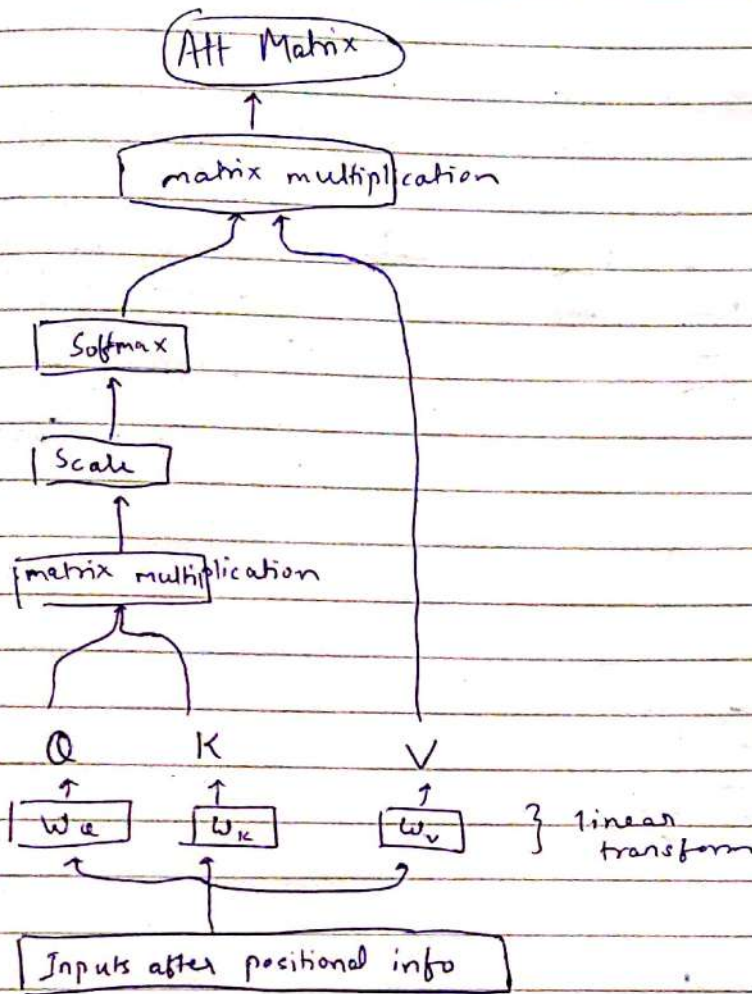 Att Matrix
matrix multiplication
Softmax
Scale
matrix multiplication
Q K V
WQ WK WV } linear
transform
Inputs after positional info